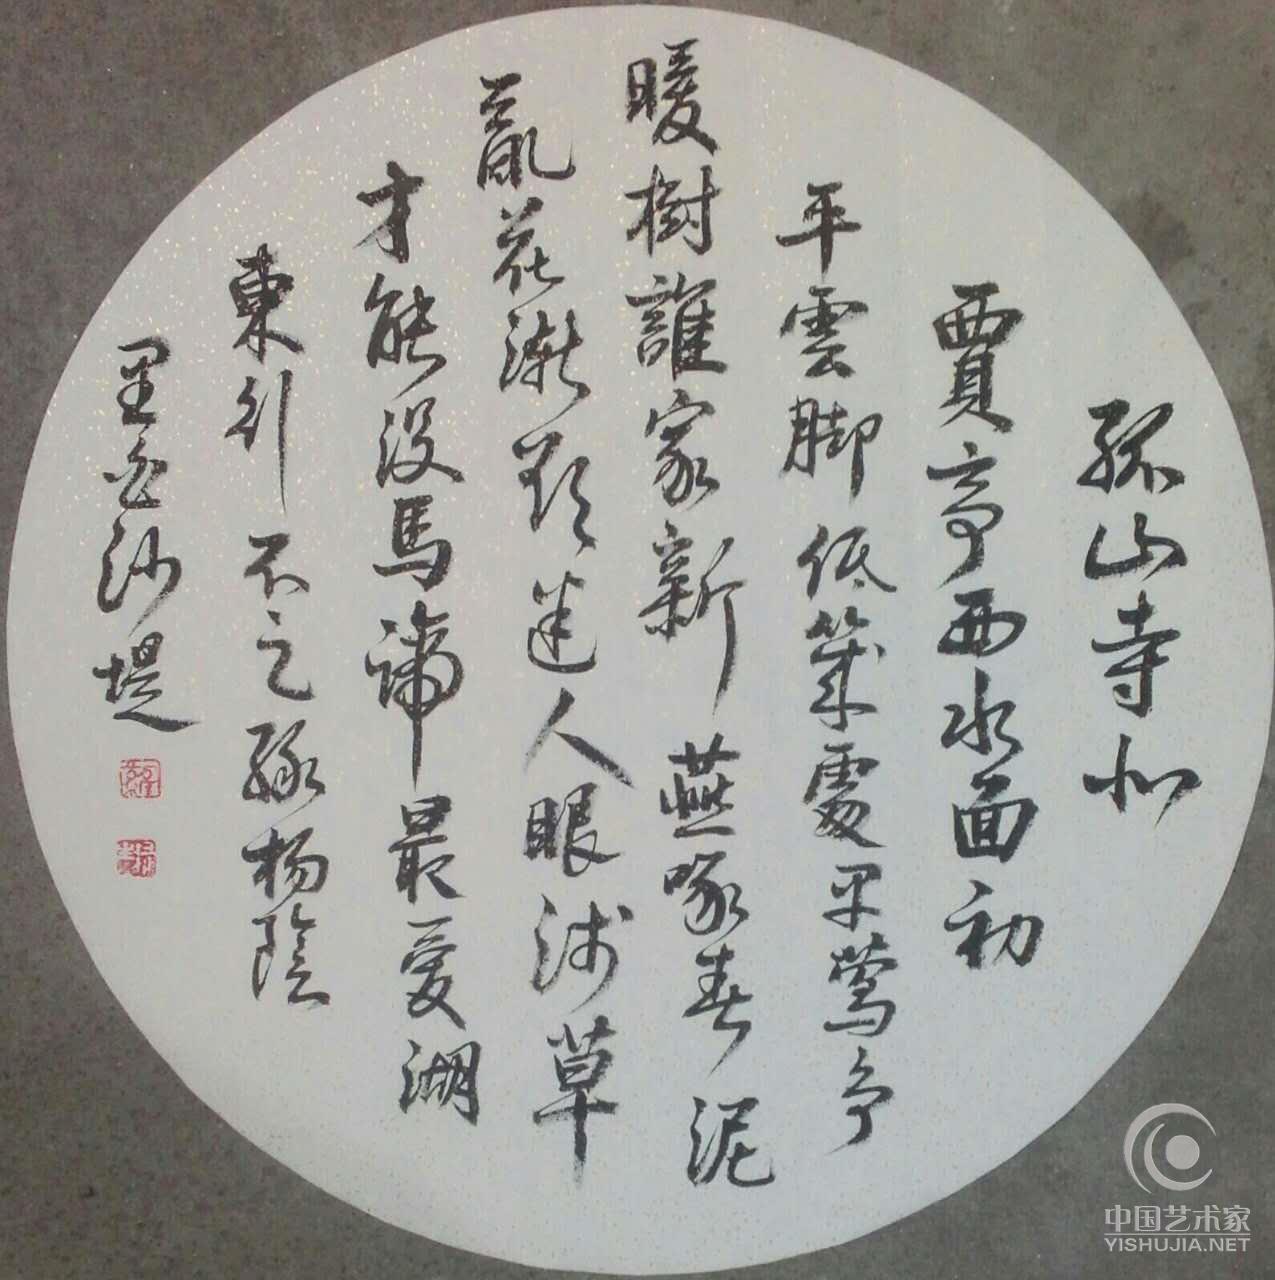 孤山寺北
賈亭西水面初
平雲脚低幾處早鶯爭
暖樹誰家新燕啄春泥
亂花漸欲迷人眼淺草
才能沒馬蹄最愛湖
東行不足綠楊陰
里白沙堤
中国艺术家
YISHUJIA.NET